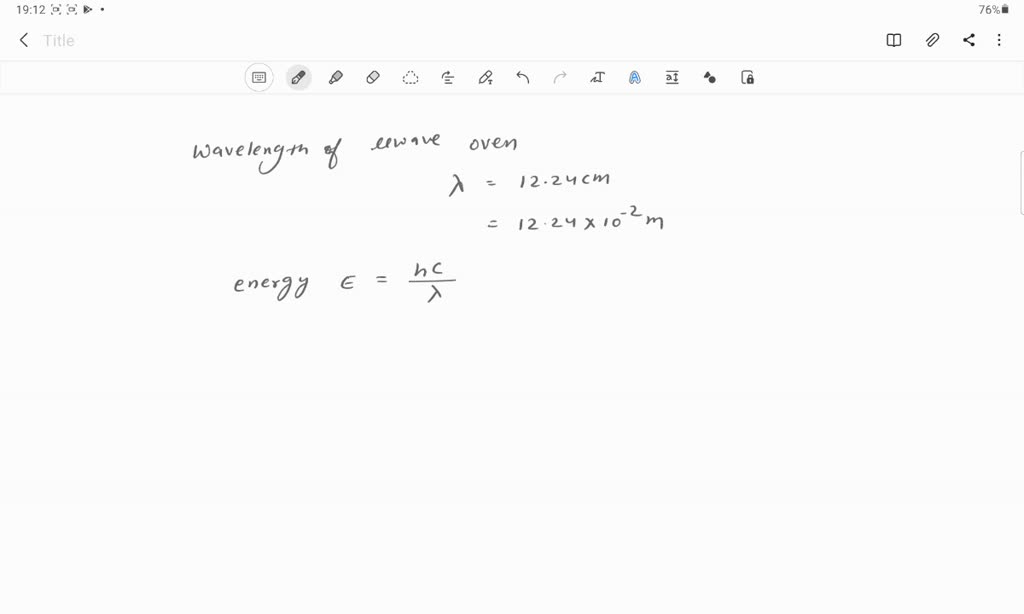 19:12
76%
Title
wavelength of μwave oven
λ = 12.24 cm
= 12.24 × 10⁻² m
energy ε = hc/λ